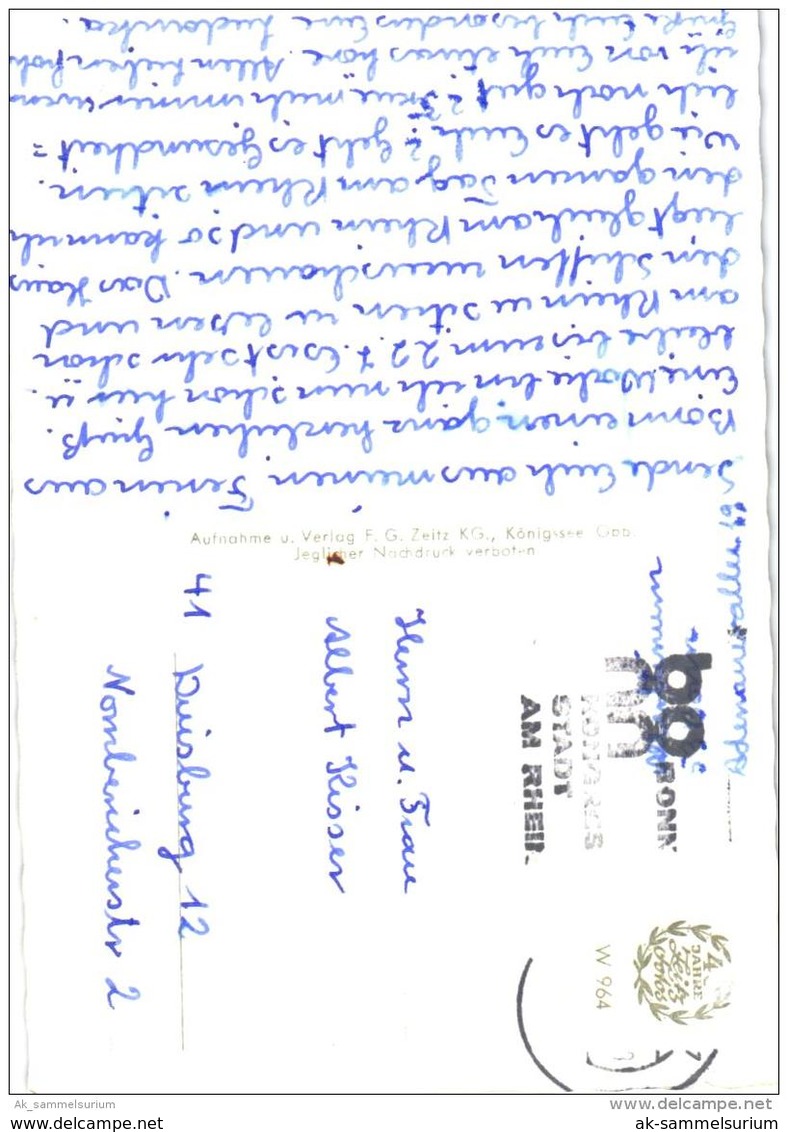 Sende Euch aus meinen Ferien aus
Bonn einen ganz herzlichen Gruß.
Eine Woche bin ich nun schon hier u.
bleibe bis zum 22.7. Es ist sehr schön
am Rhein zu sitzen zu lesen und
den Schiffen zuzuschauen. Das Haus
liegt gleich am Rhein und so kann ich
den ganzen Tag am Rhein sitzen.
Wie geht es Euch? Geht es Gesundheit=
lich noch gut? Freue mich immer wenn
ich von Euch etwas höre. Allen lieben
Grüße Euch besonders Eure
Adenauerallee
Aufnahme u. Verlag F. G. Zeitz KG., Königssee Obb.
Jeglicher Nachdruck verboten
Herrn u. Frau
Albert Kisser
41 Duisburg 12
Nombericherstr 2
BONN
bonn
KONGRESS
STADT
AM RHEIN
4
JAHRE
Zeitz
Fotos
W 964
Ak_sammelsurium
ak-sammelsurium
www.delcampe.net
ak-sammelsurium